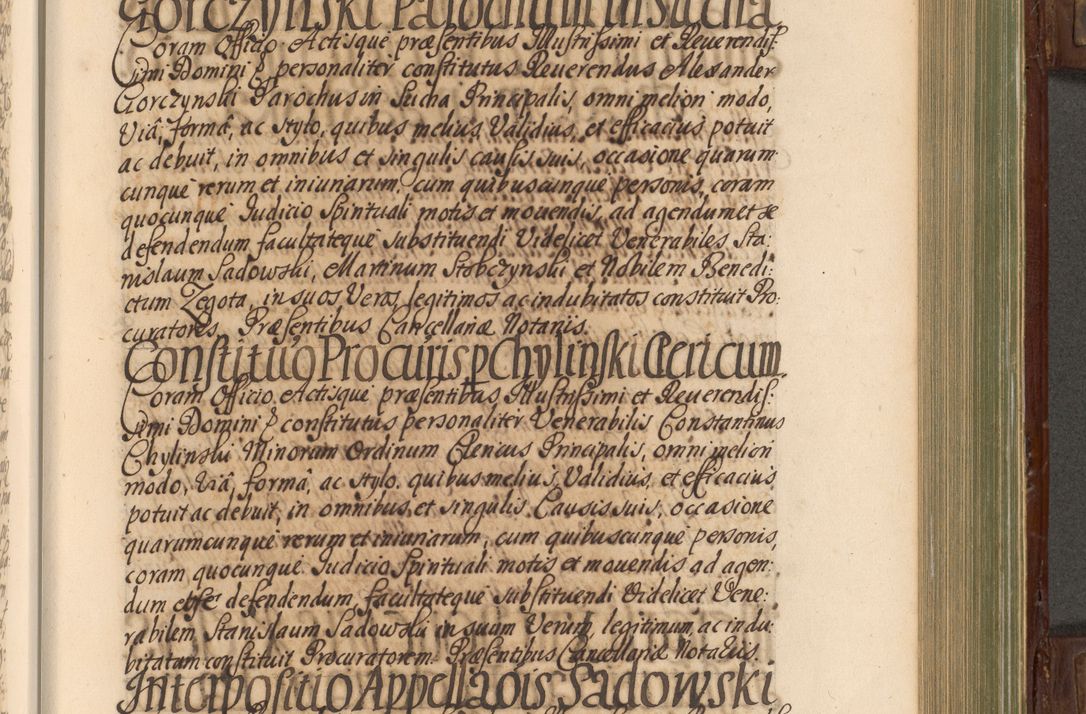 Gorczynski Parochum in Sucha
Coram Officio Actisque præsentibus Illustrissimi et Reuerendis-
simi Domini & personaliter constitutus Reuerendus Alexander
Gorczynski Parochus in Sucha Principalis, omni meliori modo,
Viâ, formâ, ac stylo, quibus melius Validius, et efficacius potuit
ac debuit, in omnibus et singulis causis suis, occasione quarum-
cunque rerum et iniuriarum, cum quibuscunque personis, coram
quocunque Iudicio Spirituali motis et mouendis, ad agendum et se
defendendum facultateque substituendi Videlicet Venerabiles Sta:
nislaum Sadowski, Martinum Stobczynski et Nobilem Benedi:
ctum Zegota, in suos Veros legitimos ac indubitatos constituit Pro:
curatores, Præsentibus Cancellariæ Notariis.
Constituo Procuris p Chylinski Clericum
Coram Officio Actisque præsentibus Illustrissimi et Reuerendis:
simi Domini & constitutus personaliter Venerabilis Constantinus
Chylinski Minorum Ordinum Clericus Principalis, omni meliori
modo, Viâ, formâ, ac stylo, quibus melius, Validius, et efficacius
potuit ac debuit, in omnibus, et singulis Causis suis, occasione
quarumcunque rerum et iniuriarum, cum quibuscunque personis,
coram quocunque Iudicio Spirituali motis et mouendis ad agen:
dum et se defendendum, facultateque substituendi Videlicet Vene:
rabilem Stanislaum Sadowski in suum Verum, legitimum, ac indu:
bitatum constituit Procuratorem. Præsentibus Cancellariæ Notariis.
Interpositio Appellaois Sadowski